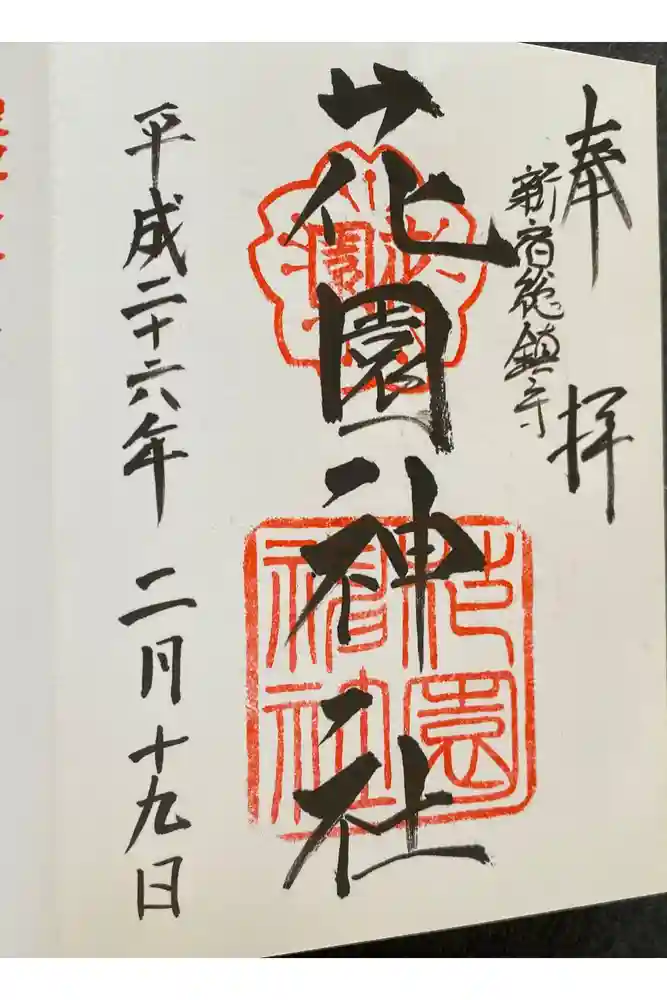 奉拝
新宿総鎮守
花園神社
花園神社
平成二十六年 二月十九日